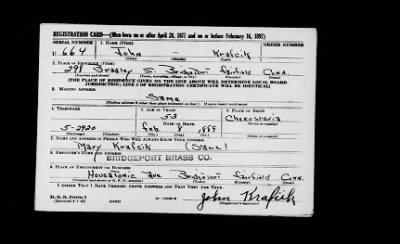 REGISTRATION CARD—(Men born on or after April 28, 1877 and on or before February 16, 1897)
SERIAL NUMBER 1. NAME (Print) ORDER NUMBER
U 664 John - Krafcik
2. PLACE OF RESIDENCE (Print)
298 St. Bridgeport Fairfield Conn.
[THE PLACE OF RESIDENCE GIVEN ON THE LINE ABOVE WILL DETERMINE LOCAL BOARD
JURISDICTION; LINE 2 OF REGISTRATION CERTIFICATE WILL BE IDENTICAL]
3. MAILING ADDRESS
Same
4. TELEPHONE 5. AGE IN YEARS 6. PLACE OF BIRTH
53 Checoslavia
5-2920 Feb 8 1889
7. NAME AND ADDRESS OF PERSON WHO WILL ALWAYS KNOW YOUR ADDRESS
Mary Krafcik (Same)
8. EMPLOYER'S NAME AND ADDRESS
BRIDGEPORT BRASS CO.
9. PLACE OF EMPLOYMENT OR BUSINESS
Housatonic Ave Bridgeport Fairfield Conn.
I AFFIRM THAT I HAVE VERIFIED ABOVE ANSWERS AND THAT THEY ARE TRUE.
D. S. S. Form 1
John Krafcik